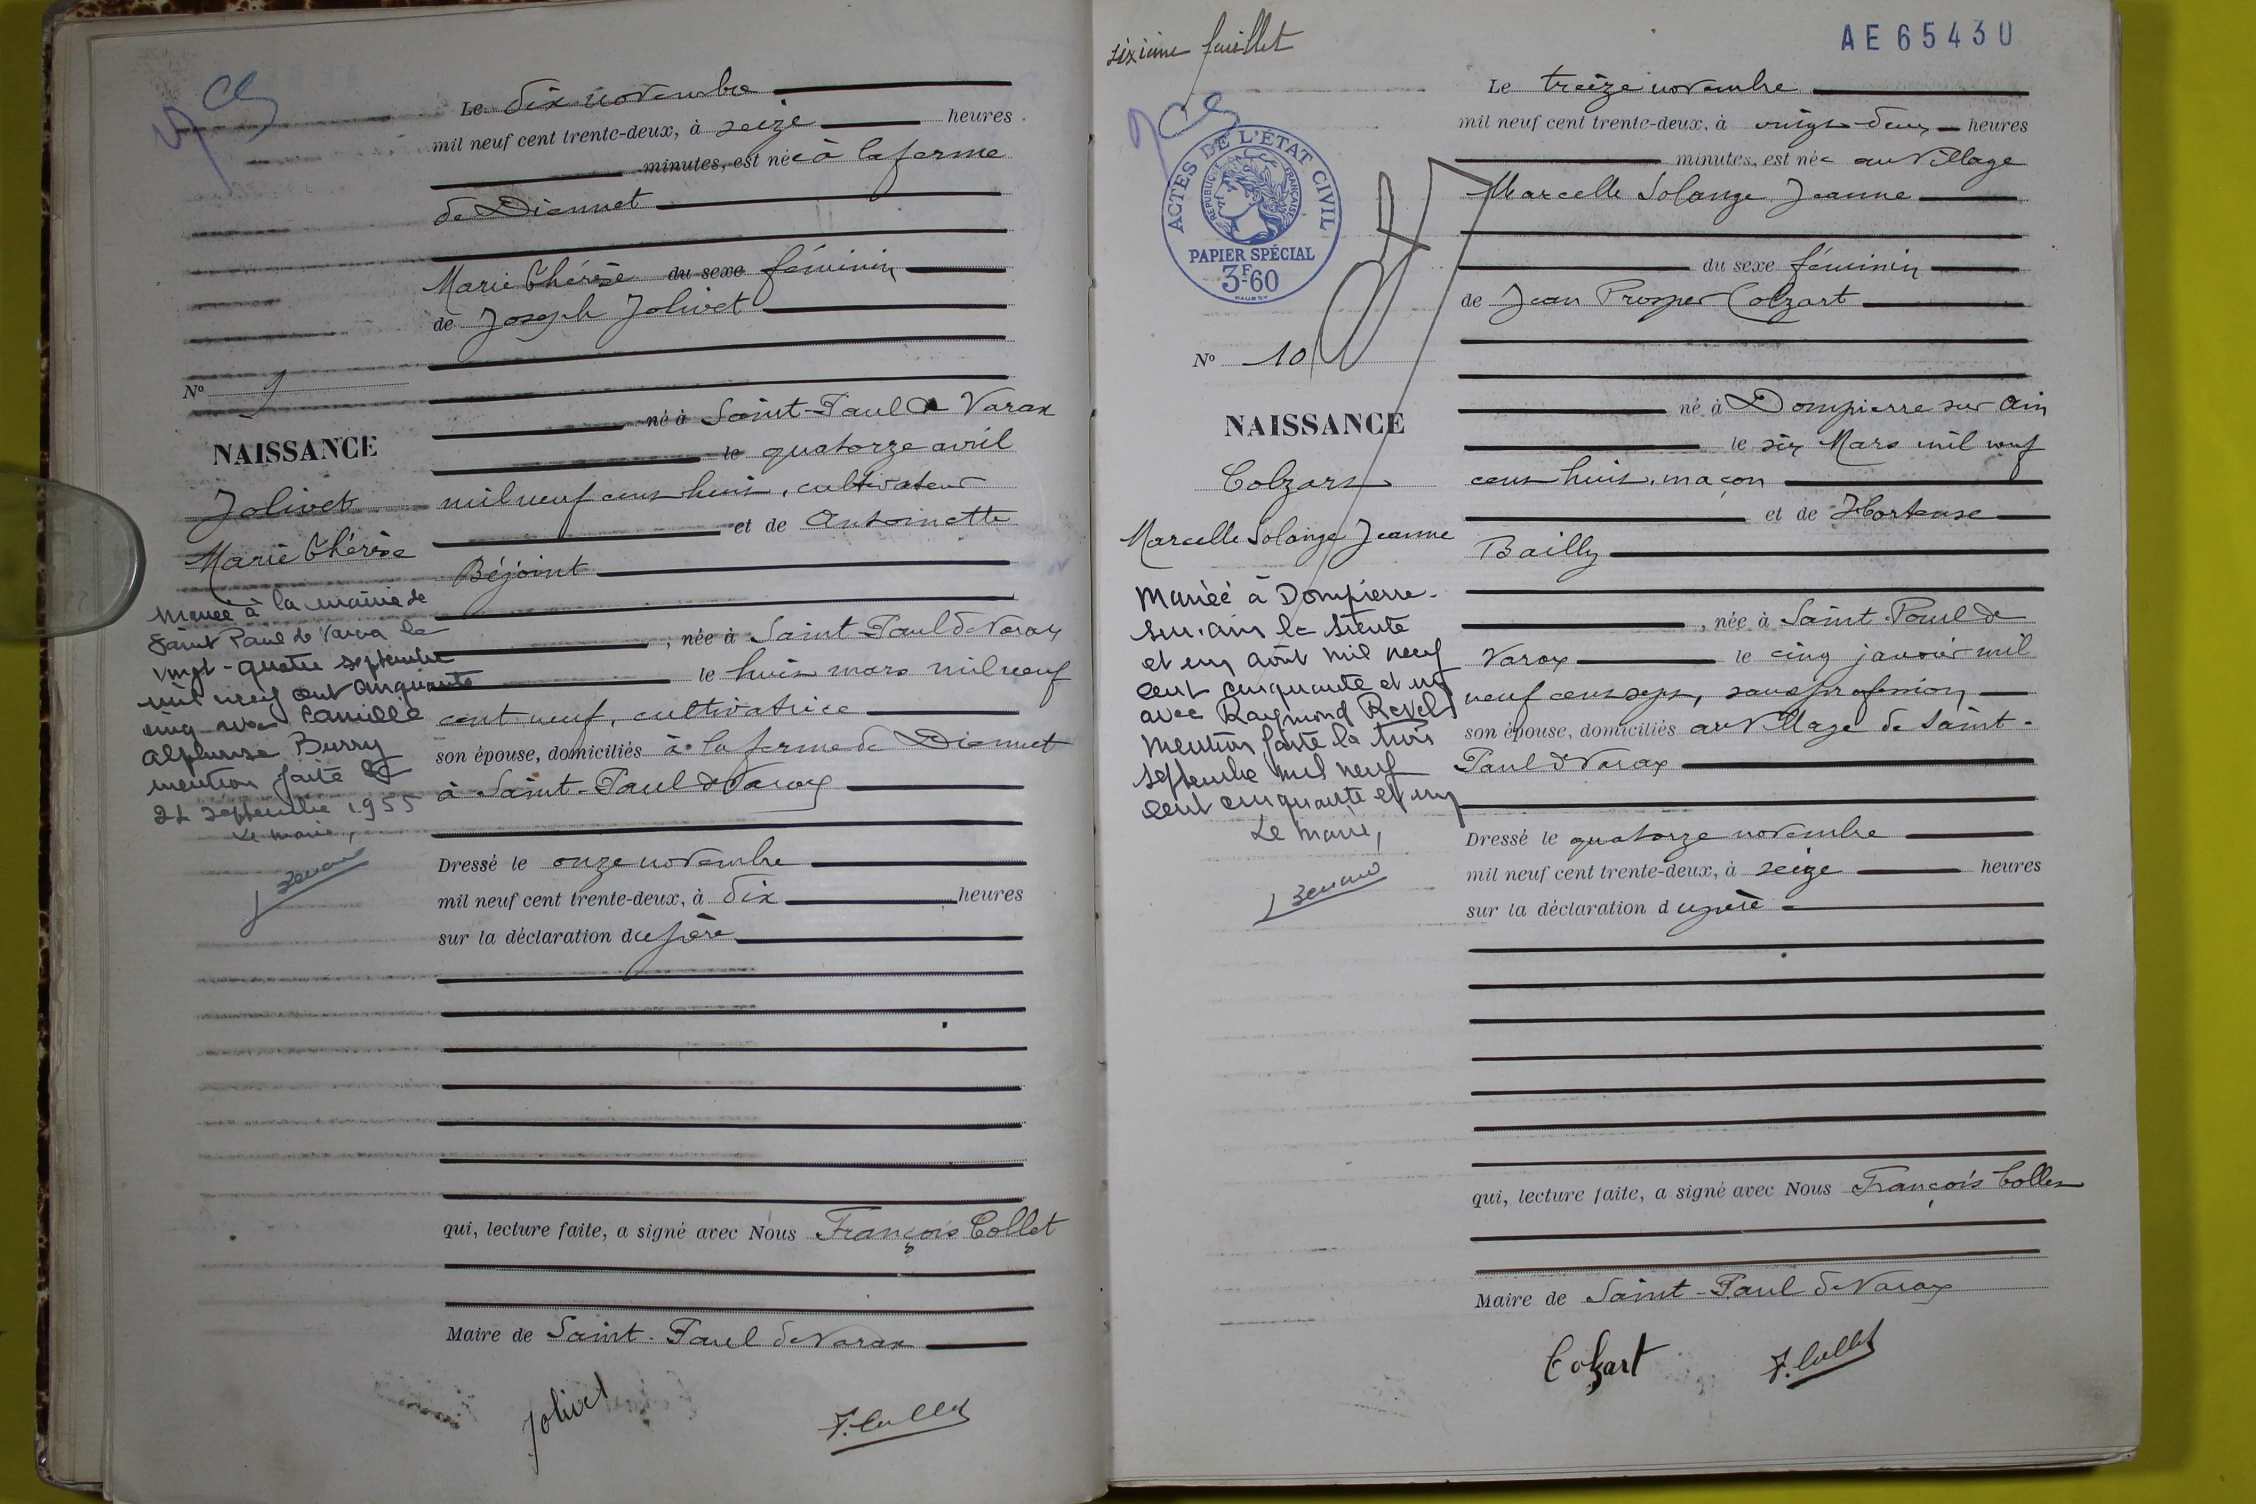 Le dix novembre
mil neuf cent trente-deux, à seize heures
minutes, est née à la ferme
de Diennet
Marie Thérèse du sexe féminin
de Joseph Jolivet
né à Saint-Paul de Varax
le quatorze avril
mil neuf cent huit, cultivateur
et de Antoinette
Béjoint
, née à Saint-Paul de Varax
le huit mars mil neuf
cent neuf, cultivatrice
son épouse, domiciliés à la ferme de Diennet
à Saint-Paul de Varax
Dressé le onze novembre
mil neuf cent trente-deux, à dix heures
sur la déclaration du père
qui, lecture faite, a signé avec Nous François Collet
Maire de Saint-Paul de Varax
Jolivet
F. Collet
No 9
NAISSANCE
Jolivet
Marie Thérèse
Mariée à la mairie de
Saint Paul de Varax le
vingt-quatre septembre
mil neuf cent cinquante
cinq avec Camille
Alphonse Burry
mention faite le
24 septembre 1955
Le maire,
sixième feuillet
AE65430
ACTES DE L'ÉTAT CIVIL
RÉPUBLIQUE FRANÇAISE
PAPIER SPÉCIAL
3F60
No 10
NAISSANCE
Colzart
Marcelle Solange Jeanne
Mariée à Dompierre-
sur-Ain le trente
et un août mil neuf
cent cinquante et un
avec Raymond Revel
Mention faite le trois
septembre mil neuf
cent cinquante et un
Le Maire,
Le treize novembre
mil neuf cent trente-deux, à vingt-deux heures
minutes, est née au village
Marcelle Solange Jeanne
du sexe féminin
de Jean Prosper Colzart
né à Dompierre sur Ain
le six Mars mil neuf
cent huit, maçon
et de Hortense
Bailly
, née à Saint-Paul de
Varax le cinq janvier mil
neuf cent sept, sans profession
son épouse, domiciliés au village de Saint-
Paul de Varax
Dressé le quatorze novembre
mil neuf cent trente-deux, à seize heures
sur la déclaration du père
qui, lecture faite, a signé avec Nous François Collet
Maire de Saint-Paul de Varax
Colzart
F. Collet